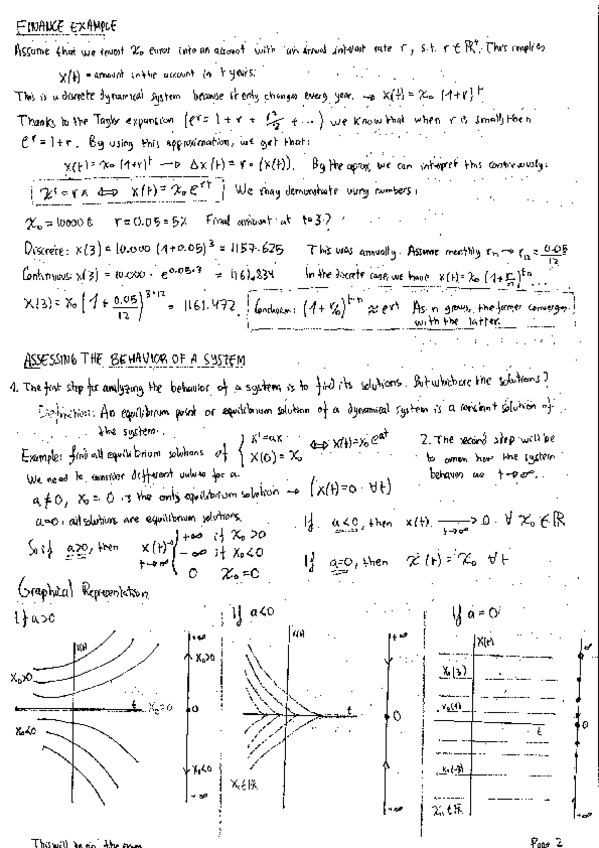 FINANCE EXAMPLE
Assume that we invest x₀ euros into an account with an annual interest rate r, s.t. r ∈ ℝ⁺. This implies
x(t) = amount in the account in t years.
This is a discrete dynamical system because it only changes every year. → x(t) = x₀ (1+r)ᵗ
Thanks to the Taylor expansion (eʳ = 1 + r + r²/2 + ...) we know that when r is small then
eʳ = 1+r. By using this approximation, we get that:
x(t) = x₀ (1+r)ᵗ → Δx(t) = r · (x(t)). By the approx, we can interpret this continuously:
x' = rx ⟺ x(t) = x₀ eʳᵗ We may demonstrate using numbers:
x₀ = 10000 € r = 0.05 = 5% Final amount at t=3?
Discrete: x(3) = 10.000 (1+0.05)³ = 1157.625 This was annually. Assume monthly rₙ → r₁₂ = 0.05/12
Continuous: x(3) = 10.000 · e^0.05·3 = 1161.834 In the discrete case, we have x(t) = x₀ (1+r/n)^t·n
X(3) = x₀ (1 + 0.05/12)^3·12 = 1161.472 Conclusion: (1+r/n)^t·n ≈ eʳᵗ As n grows, the former converges
with the latter.
ASSESSING THE BEHAVIOR OF A SYSTEM
1. The first step for analyzing the behavior of a system is to find its solutions. But which are the solutions?
Definition: An equilibrium point or equilibrium solution of a dynamical system is a constant solution of
the system.
Example: find all equilibrium solutions of { x' = ax ⟺ x(t) = x₀ eᵃᵗ
X(0) = x₀
2. The second step will be
to assess how the system
behaves as t → ∞.
We need to consider different values for a.
a ≠ 0, x₀ = 0 is the only equilibrium solution → (x(t) = 0 ∀t)
a=0: all solutions are equilibrium solutions.
If a<0, then x(t) → 0 ∀ x₀ ∈ ℝ
t→∞
So if a>0, then x(t) → { +∞ if x₀ > 0
t→∞ -∞ if x₀ < 0
0 x₀ = 0
If a=0, then x(t) = x₀ ∀t
Graphical Representation
If a>0
If a<0
If a = 0
x(t)
+∞
x₀>0
x₀>0
t
x₀=0
0
x₀<0
x₀<0
x(t)
+∞
t
0
x₀ ∈ ℝ
X(t)
x₀(3)
x₀(1)
t
0
x₀(-3)
x₀ ∈ ℝ
This will be in the exam
Page 2